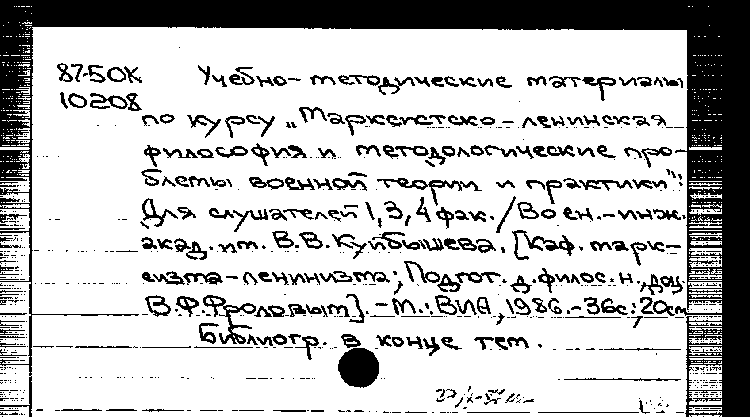 87-50К Учебно-методические материалы
10208
по курсу „Марксистско-ленинская
философия и методологические про-
блемы военной теории и практики":
Для слушателей 1,3,4 фак./Воен.-инж.
акад. им. В.В.Куйбышева. [Каф. марк-
сизма-ленинизма; Подгот. д.филос.н.,доц.
В.Ф.Фроловым]. -М.: ВИА, 1986.-36с.; 20см
Библиогр. в конце тем.